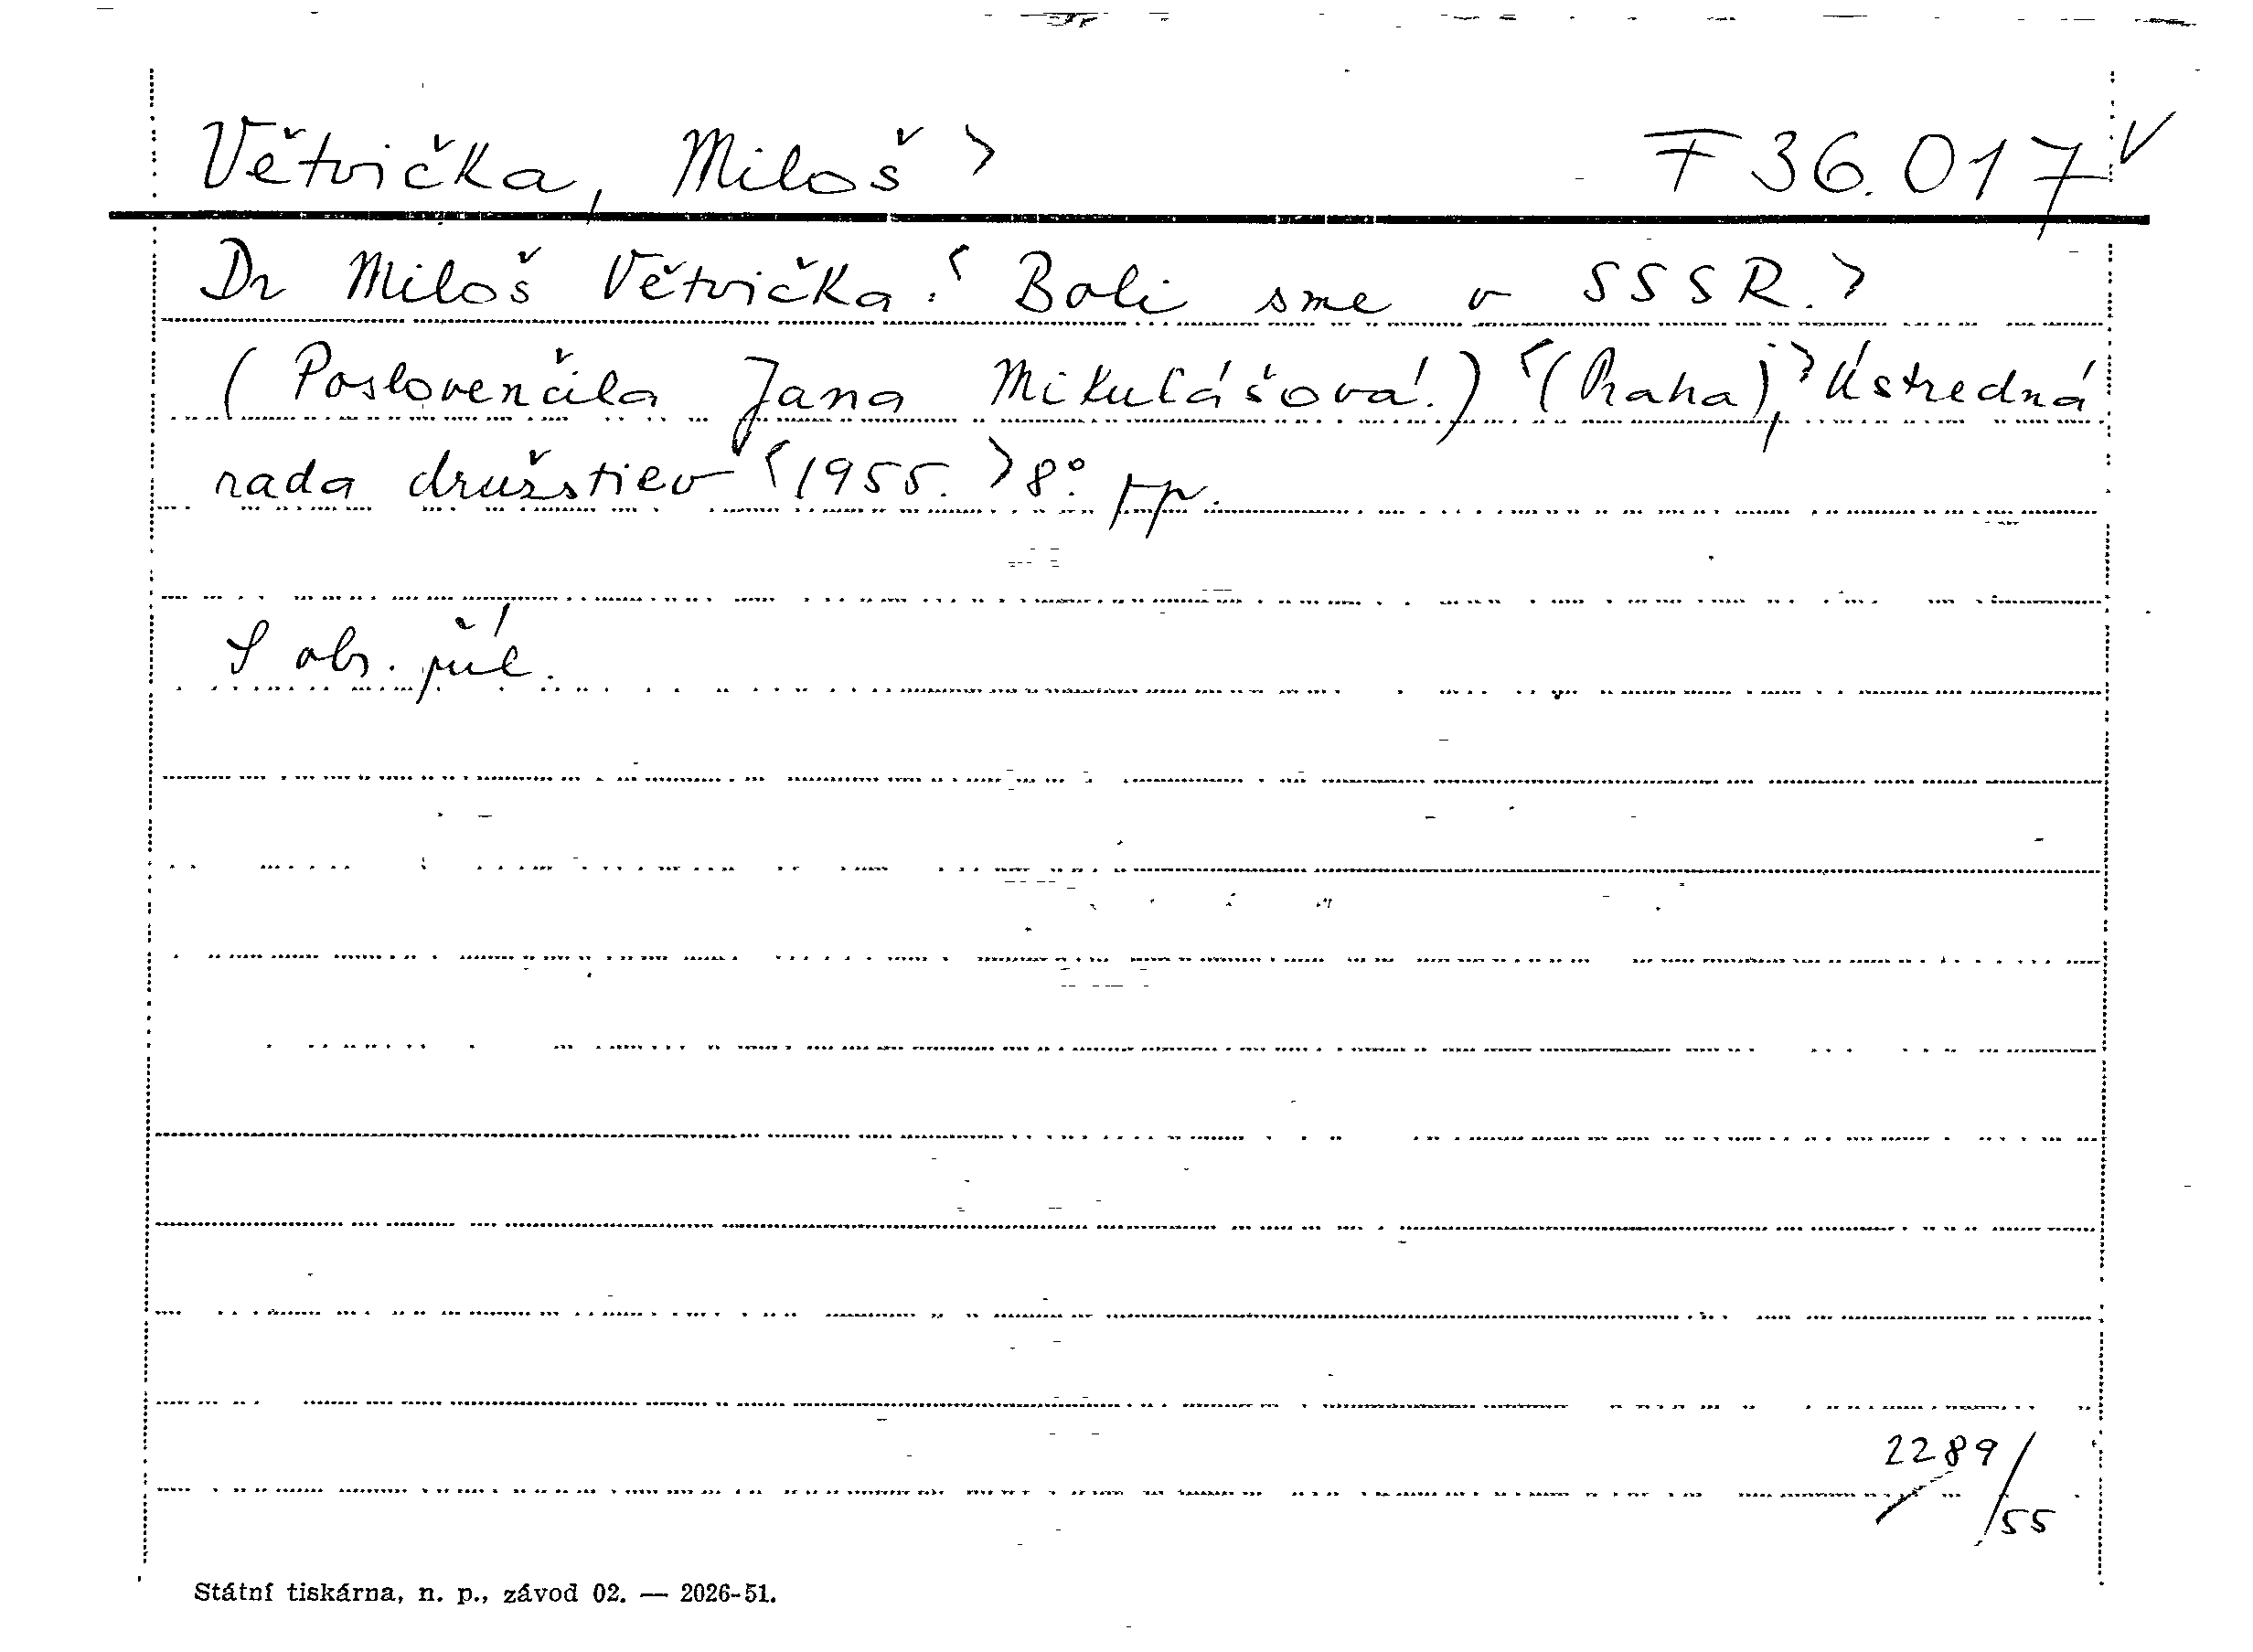 Větvička, Miloš > F 36.017 V
Dr Miloš Větvička: < Boli sme v SSSR. >
(Poslovenčila Jana Mikulášová.) < (Praha), > Ústredná
rada družstiev < 1955. > 8°.
S obr. příl.
2289/55
Státní tiskárna, n. p., závod 02. — 2026-51.